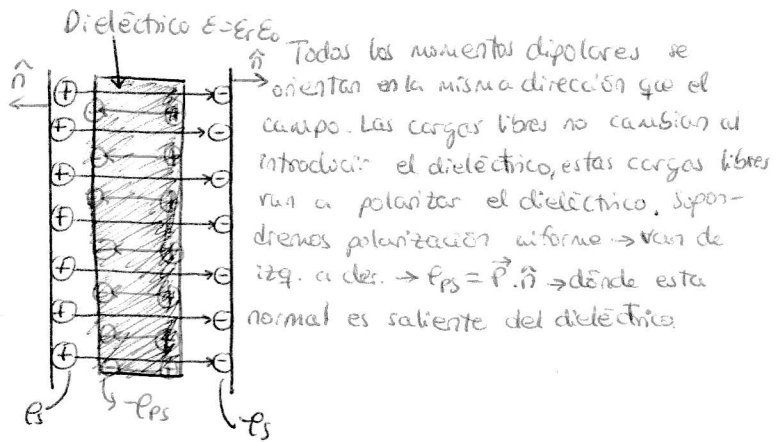 Dieléctrico ε=εrε0
n̂
n̂
Todos los momentos dipolares se
orientan en la misma dirección que el
campo. Las cargas libres no cambian al
introducir el dieléctrico, estas cargas libres
van a polarizar el dieléctrico. Supon-
dremos polarización uniforme → van de
izq. a der. → ρps = P⃗ . n̂ → dónde esta
normal es saliente del dieléctrico.
ρs
-ρps
-ρs